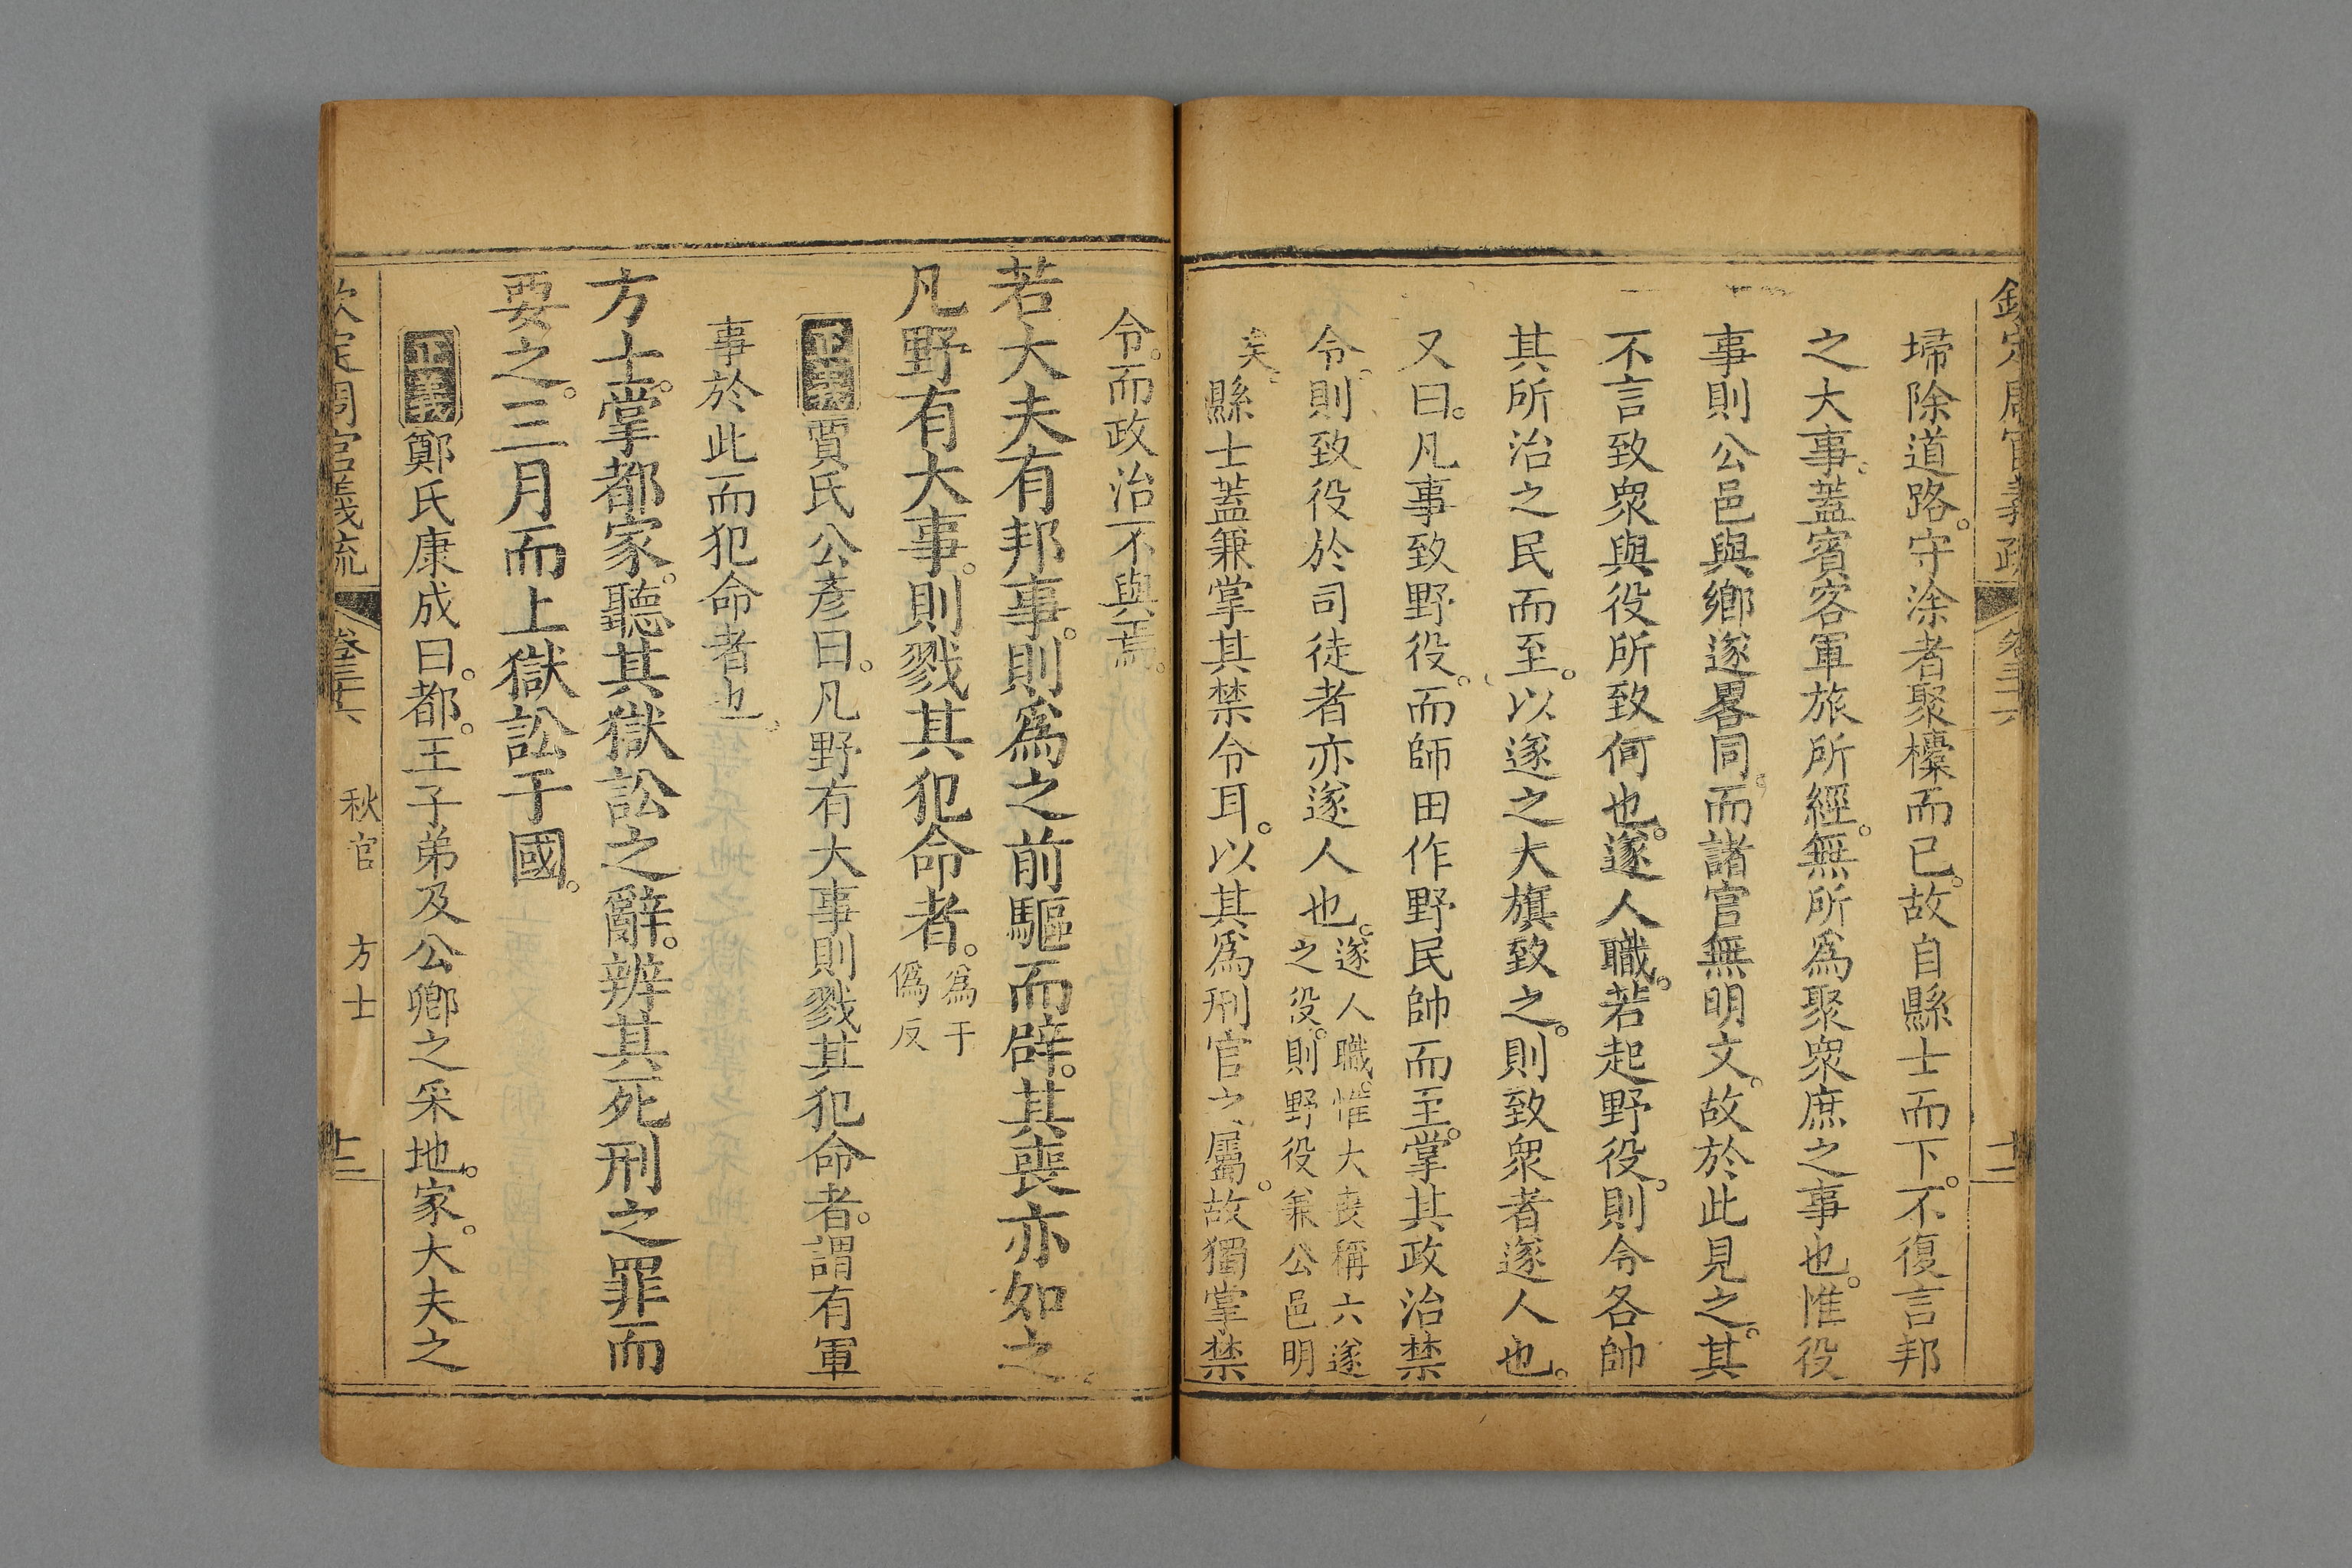 欽定周官義疏 卷三十六 十二
埽除道路。守涂者聚櫜而已。故自縣士而下。不復言邦
之大事。蓋賓客軍旅所經。無所爲聚衆庶之事也。惟役
事則公邑與鄉遂畧同。而諸官無明文。故於此見之。其
不言致衆與役所致何也。遂人職。若起野役。則令各帥
其所治之民而至。以遂之大旗致之。則致衆者遂人也。
又曰。凡事致野役。而師田作野民帥而至。掌其政治禁
令。則致役於司徒者亦遂人也。遂人職。惟大喪稱六遂
之役。則野役兼公邑明
矣。縣士蓋兼掌其禁令耳。以其爲刑官之屬。故獨掌禁
令。而政治不與焉。
若大夫有邦事。則爲之前驅而辟。其喪亦如之
凡野有大事。則戮其犯命者。爲于
僞反
正義賈氏公彥曰。凡野有大事則戮其犯命者。謂有軍
事於此而犯命者也。
方士掌都家。聽其獄訟之辭。辨其死刑之罪而
要之。三月而上獄訟于國。
正義鄭氏康成曰。都。王子弟及公卿之采地。家。大夫之
欽定周官義疏 卷三十六 秋官 方士 十三